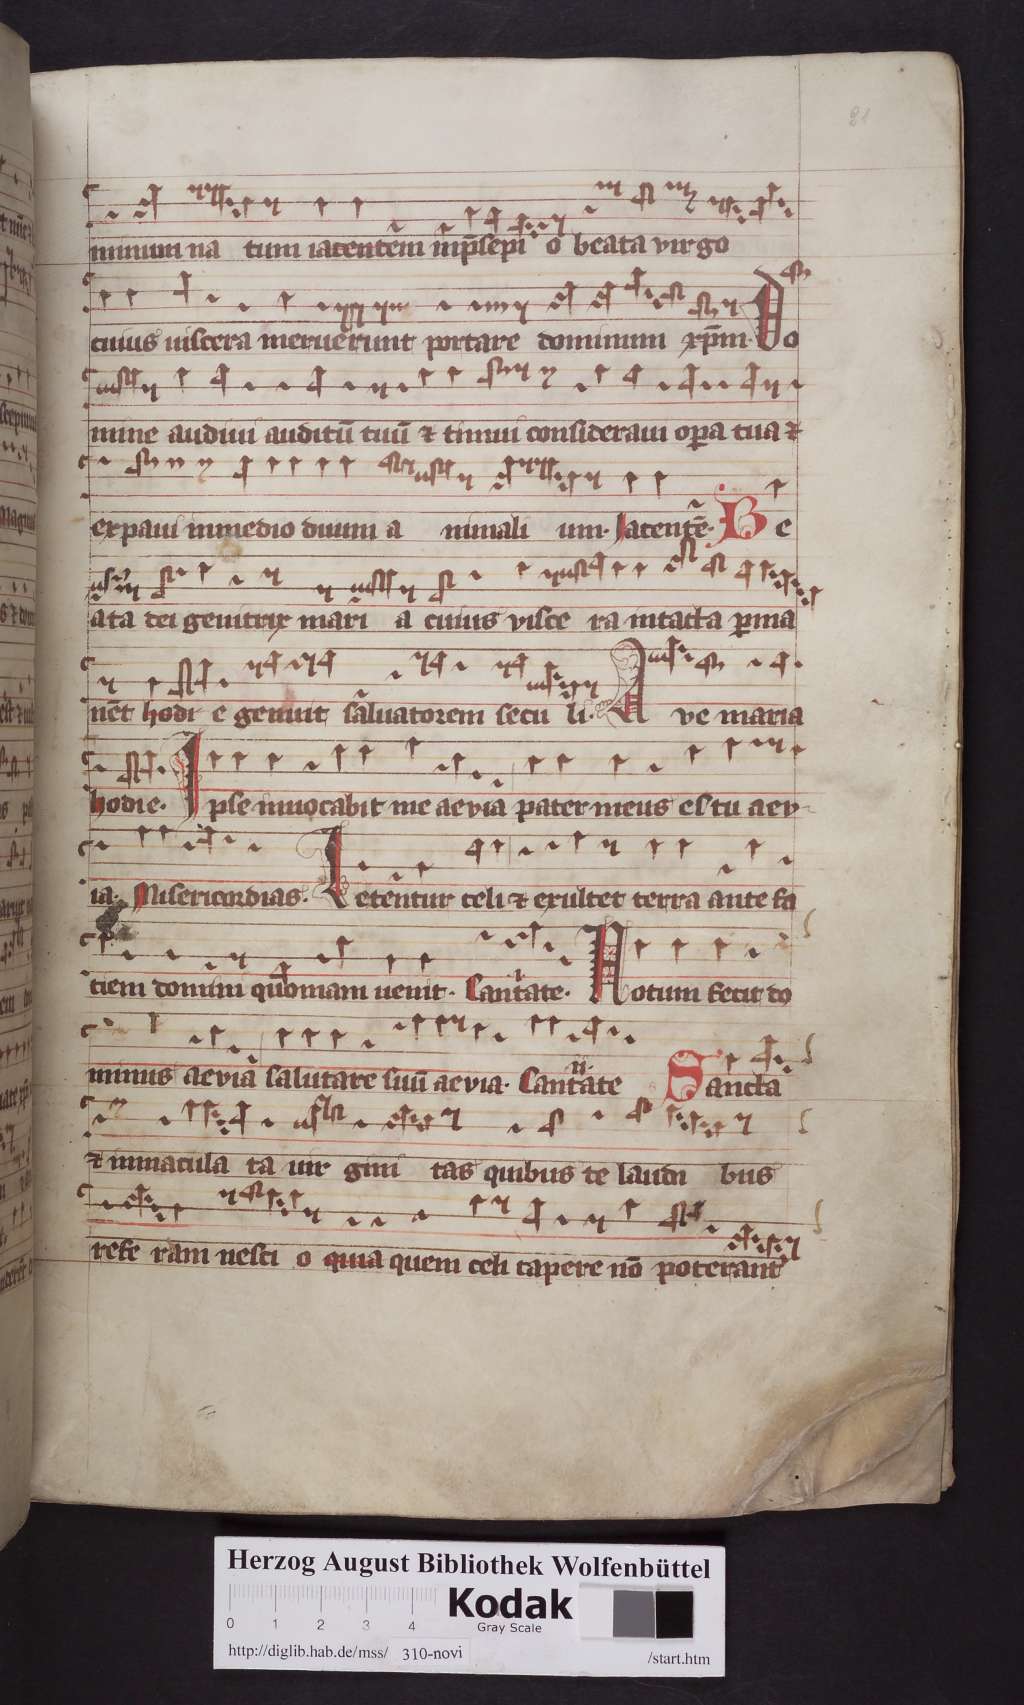 21
minum na tum iacentem inp̄sepi o beata virgo
cuius uiscera meruerunt portare dominum xp̄m. Do
mine audiui auditū tuū ⁊ timui consideraui opa tua ⁊
expaui inmedio duum a nimali um. Iacentē. Be
ata dei genitrix mari a cuius visce ra intacta pma
nēt hodi e genuit saluatorem secu li. Aue maria
hodie. Ipse inuocabit me aevia pater meus es tu aev-
ia. Misericordias. Letentur celi ⁊ exultet terra ante fa
ciem domini quoniam uenit. Cantate. Notum fecit do
minus aevia salutare suū aevia. Cantate ii. Sancta
⁊ inmacula ta uir gini tas quibus te laudi bus
refe ram nesci o quia quem celi capere nō poterant
Herzog August Bibliothek Wolfenbüttel
Kodak
Gray Scale
0 1 2 3 4
http://diglib.hab.de/mss/ 310-novi /start.htm